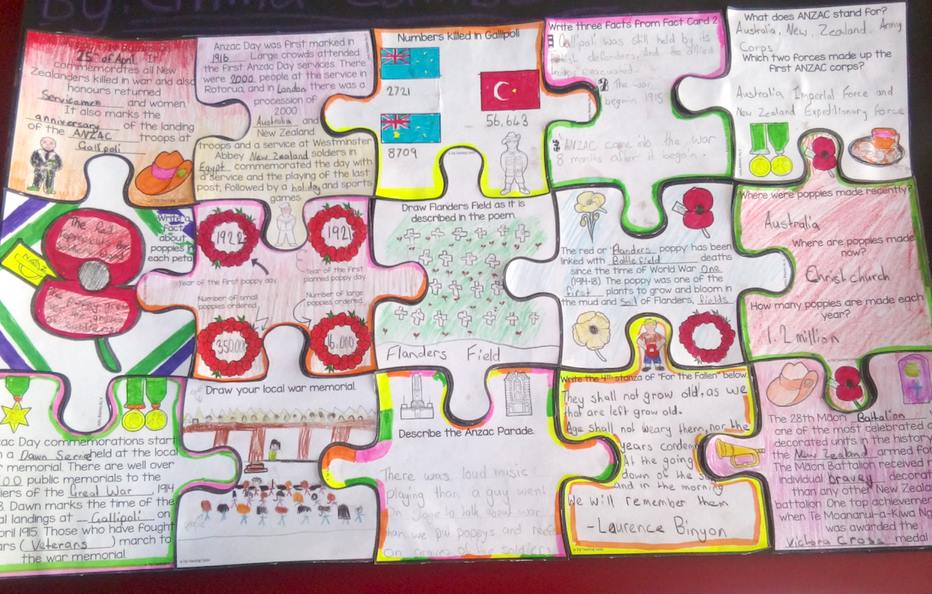 By:
25th of April. It
commemorates all New
Zealanders killed in war and also
honours returned
Servicemen and women.
It also marks the
anniversary of the landing
of the ANZAC troops at
Gallipoli
Anzac Day was first marked in
1916. Large crowds attended
the first Anzac Day services. There
were 2000 people at the service in
Rotorua, and in London there was a
procession of
2000
Australia and
New Zealand
troops and a service at Westminster
Abbey. New Zealand soldiers in
Egypt commemorated the day with
a service and the playing of the last
post, followed by a holiday and sports
games.
Numbers killed in Gallipoli
2721
56,643
8709
Write three Facts from Fact Card 2
Gallipoli was still held by its
defenders, and the allied
evacuated.
The war
began in 1915
ANZAC came into the war
8 months after it began.
What does ANZAC stand for?
Australia, New, Zealand, Army
Corps
Which two forces made up the
first ANZAC corps?
Australia Imperial Force and
New Zealand Expeditionary force
Write a
fact
about
poppies in
each petal
The Red
1922
1921
Year of the first poppy day.
Year of the first
planned poppy day.
Number of small
poppies ordered.
Number of large
poppies ordered.
350,000
16,000
Draw Flanders Field as it is
described in the poem.
Flanders Field
The red or 'flanders' poppy has been
linked with Battlefield deaths
since the time of World War One
(1914-18). The poppy was one of the
first plants to grow and bloom in
the mud and soil of Flanders, fields
Where were poppies made recently?
Australia
Where are poppies made
now?
Christchurch
How many poppies are made each
year?
1.2 million
Anzac Day commemorations start
Dawn Service held at the local
memorial. There are well over
public memorials to the
of the Great War 1914
Dawn marks the time of the
landings at Gallipoli on
April 1915. Those who have fought
(Veterans) march to
the war memorial
Draw your local war memorial.
Describe the Anzac Parade.
There was loud music
playing than a guy went
On stage to talk about war
than we put poppys and
On
soldiers
Write the 4th stanza of "For the Fallen" below
They shall not grow old, as we
that are left grow old.
Age shall not weary them, nor the
years condemn
At the going
down of the sun
and in the morning
We will remember them
-Laurence Binyon
The 28th Māori Battalion
one of the most celebrated
decorated units in the history
the New Zealand armed for
The Māori Battalion received
individual bravey decorat
than any other New Zealand
battalion. One top achievement
when Te Moananui-a-Kiwa Ng
was awarded the
Victoria Cross medal